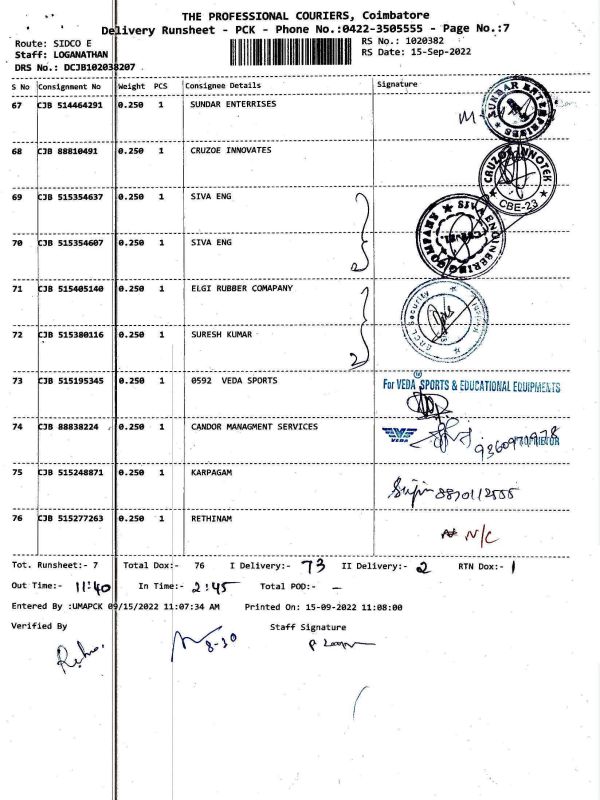 THE PROFESSIONAL COURIERS, Coimbatore
Delivery Runsheet - PCK - Phone No.:0422-3505555 - Page No.:7
Route: SIDCO E
RS No.: 1020382
Staff: LOGANATHAN
RS Date: 15-Sep-2022
DRS No.: DCJB102038207
S No Consignment No Weight PCS Consignee Details Signature
67 CJB 514464291 0.250 1 SUNDAR ENTERRISES
SUNDAR ENTERPRISES
68 CJB 88810491 0.250 1 CRUZOE INNOVATES
CRUZOE INNOTEK
CBE-23
69 CJB 515354637 0.250 1 SIVA ENG
SIVA ENGINEERING COMPANY
70 CJB 515354607 0.250 1 SIVA ENG
2
71 CJB 515405140 0.250 1 ELGI RUBBER COMAPANY
Security
72 CJB 515380116 0.250 1 SURESH KUMAR
2
73 CJB 515195345 0.250 1 0592 VEDA SPORTS
For VEDA SPORTS & EDUCATIONAL EQUIPMENTS
74 CJB 88838224 0.250 1 CANDOR MANAGMENT SERVICES
VEDA
75 CJB 515248871 0.250 1 KARPAGAM
76 CJB 515277263 0.250 1 RETHINAM
N/C
Tot. Runsheet:- 7 Total Dox:- 76 I Delivery:- 73 II Delivery:- 2 RTN Dox:- 1
Out Time:- 11:40 In Time:- 2:45 Total POD:- -
Entered By :UMAPCK 09/15/2022 11:07:34 AM Printed On: 15-09-2022 11:08:00
Verified By Staff Signature
8-30